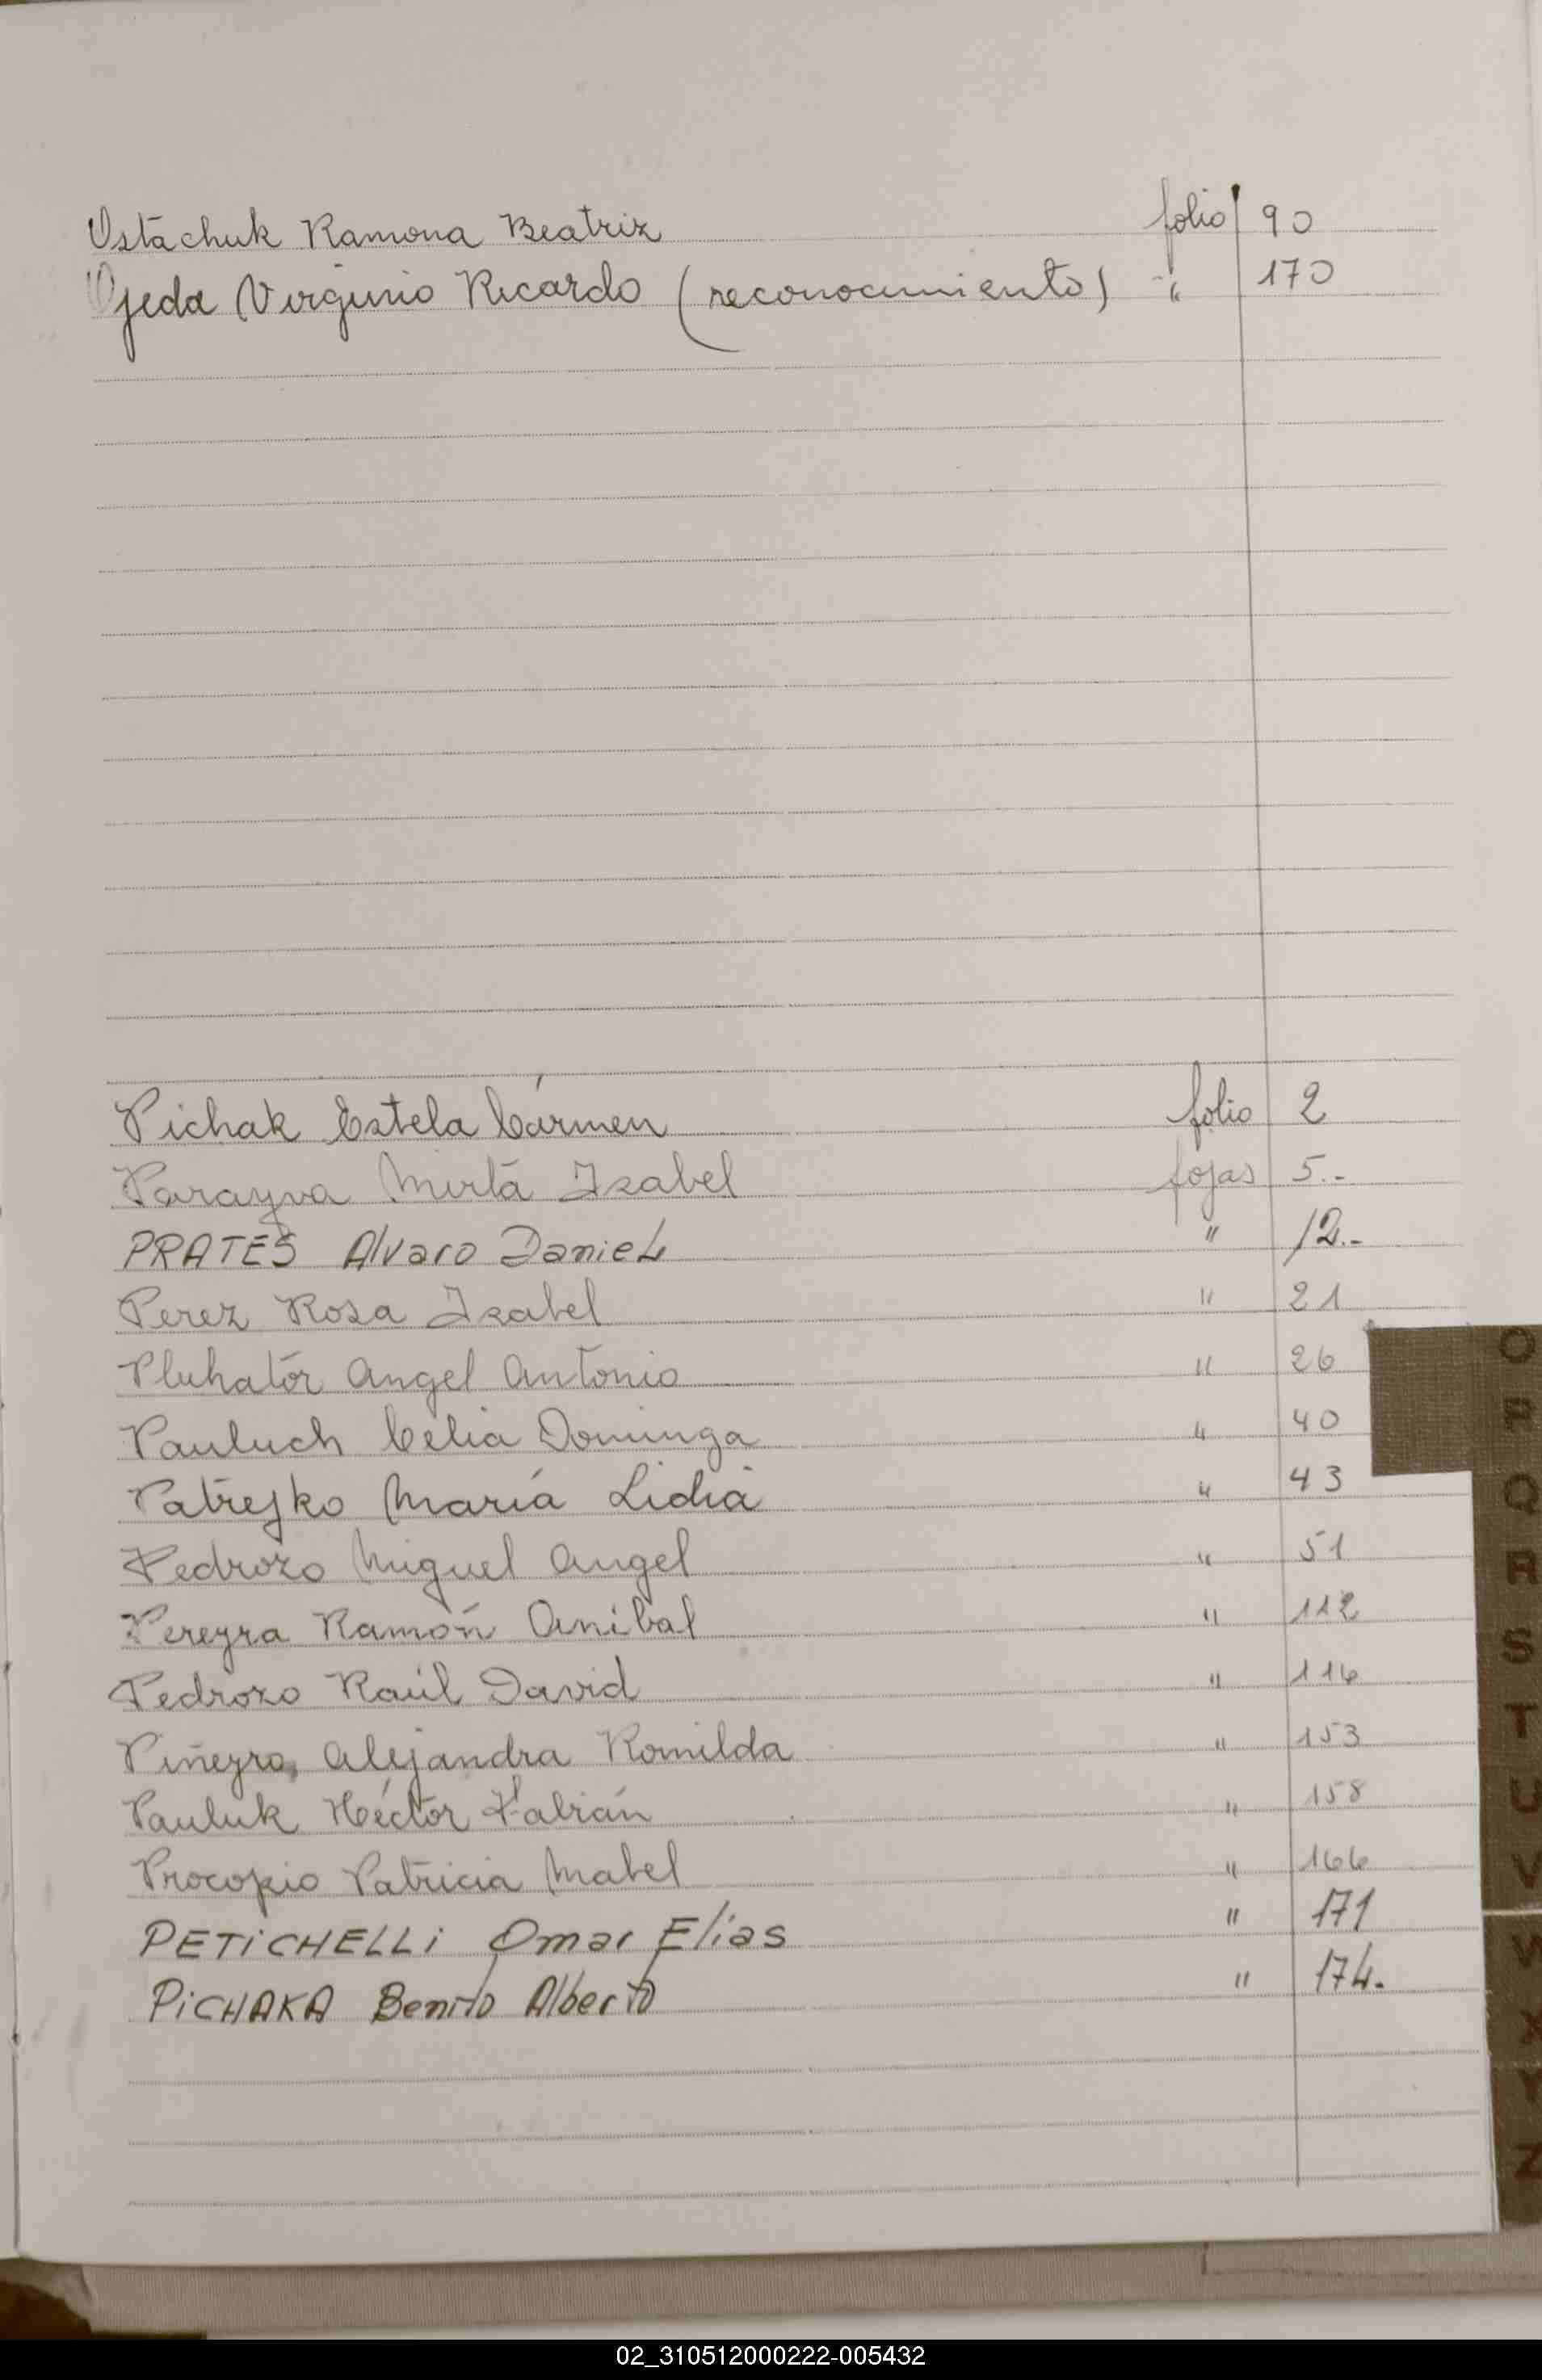 Ostachuk Ramona Beatriz folio 90
Ojeda Virginio Ricardo (reconocimiento) " 170
Pichak Estela Cármen folio 2
Parayva Mirta Isabel fojas 5.-
PRATES Alvaro Daniel " 12.-
Perez Rosa Isabel " 21
Pluhator Angel Antonio " 26
Pauluch Celia Dominga " 40
Patrejko María Lidia " 43
Pedrozo Miguel Angel " 51
Pereyra Ramón Anibal " 112
Pedrozo Raúl David " 116
Piñeyro, Alejandra Romilda " 153
Pauluk Héctor Fabián " 158
Procopio Patricia Mabel " 166
PETiCHELLi Omar Elias " 171
PiCHAKA Benito Alberto " 174.
O
P
Q
R
S
T
U
V
W
X
Y
Z
02_310512000222-005432